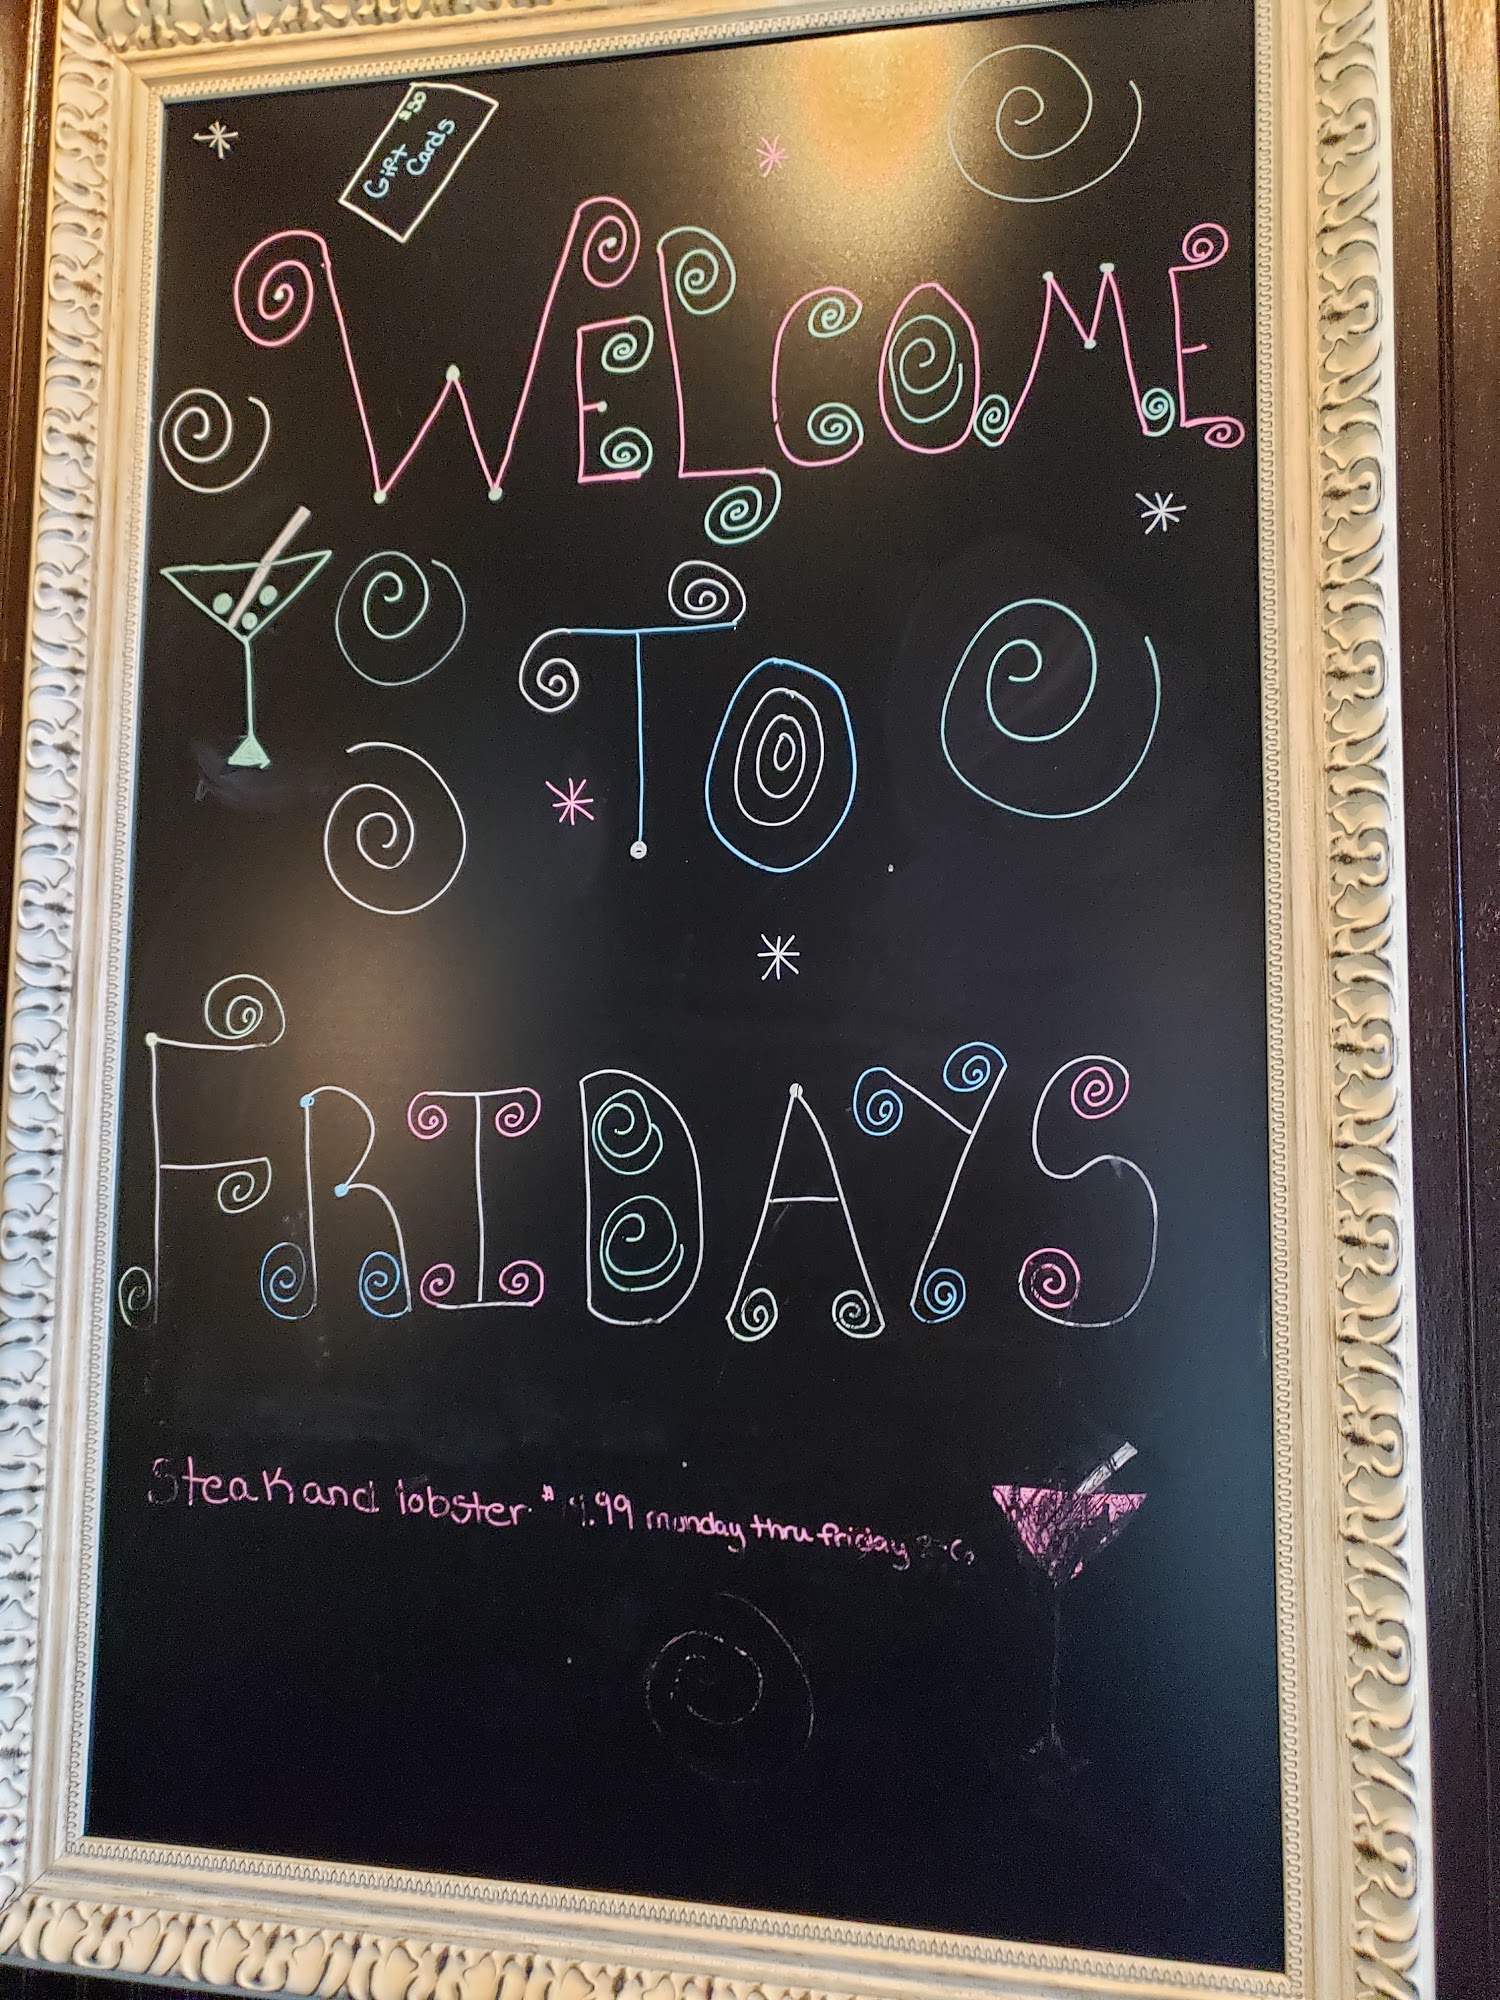 $50
Gift
Cards
WELCOME
TO
FRIDAYS
Steak and lobster munday thru friday